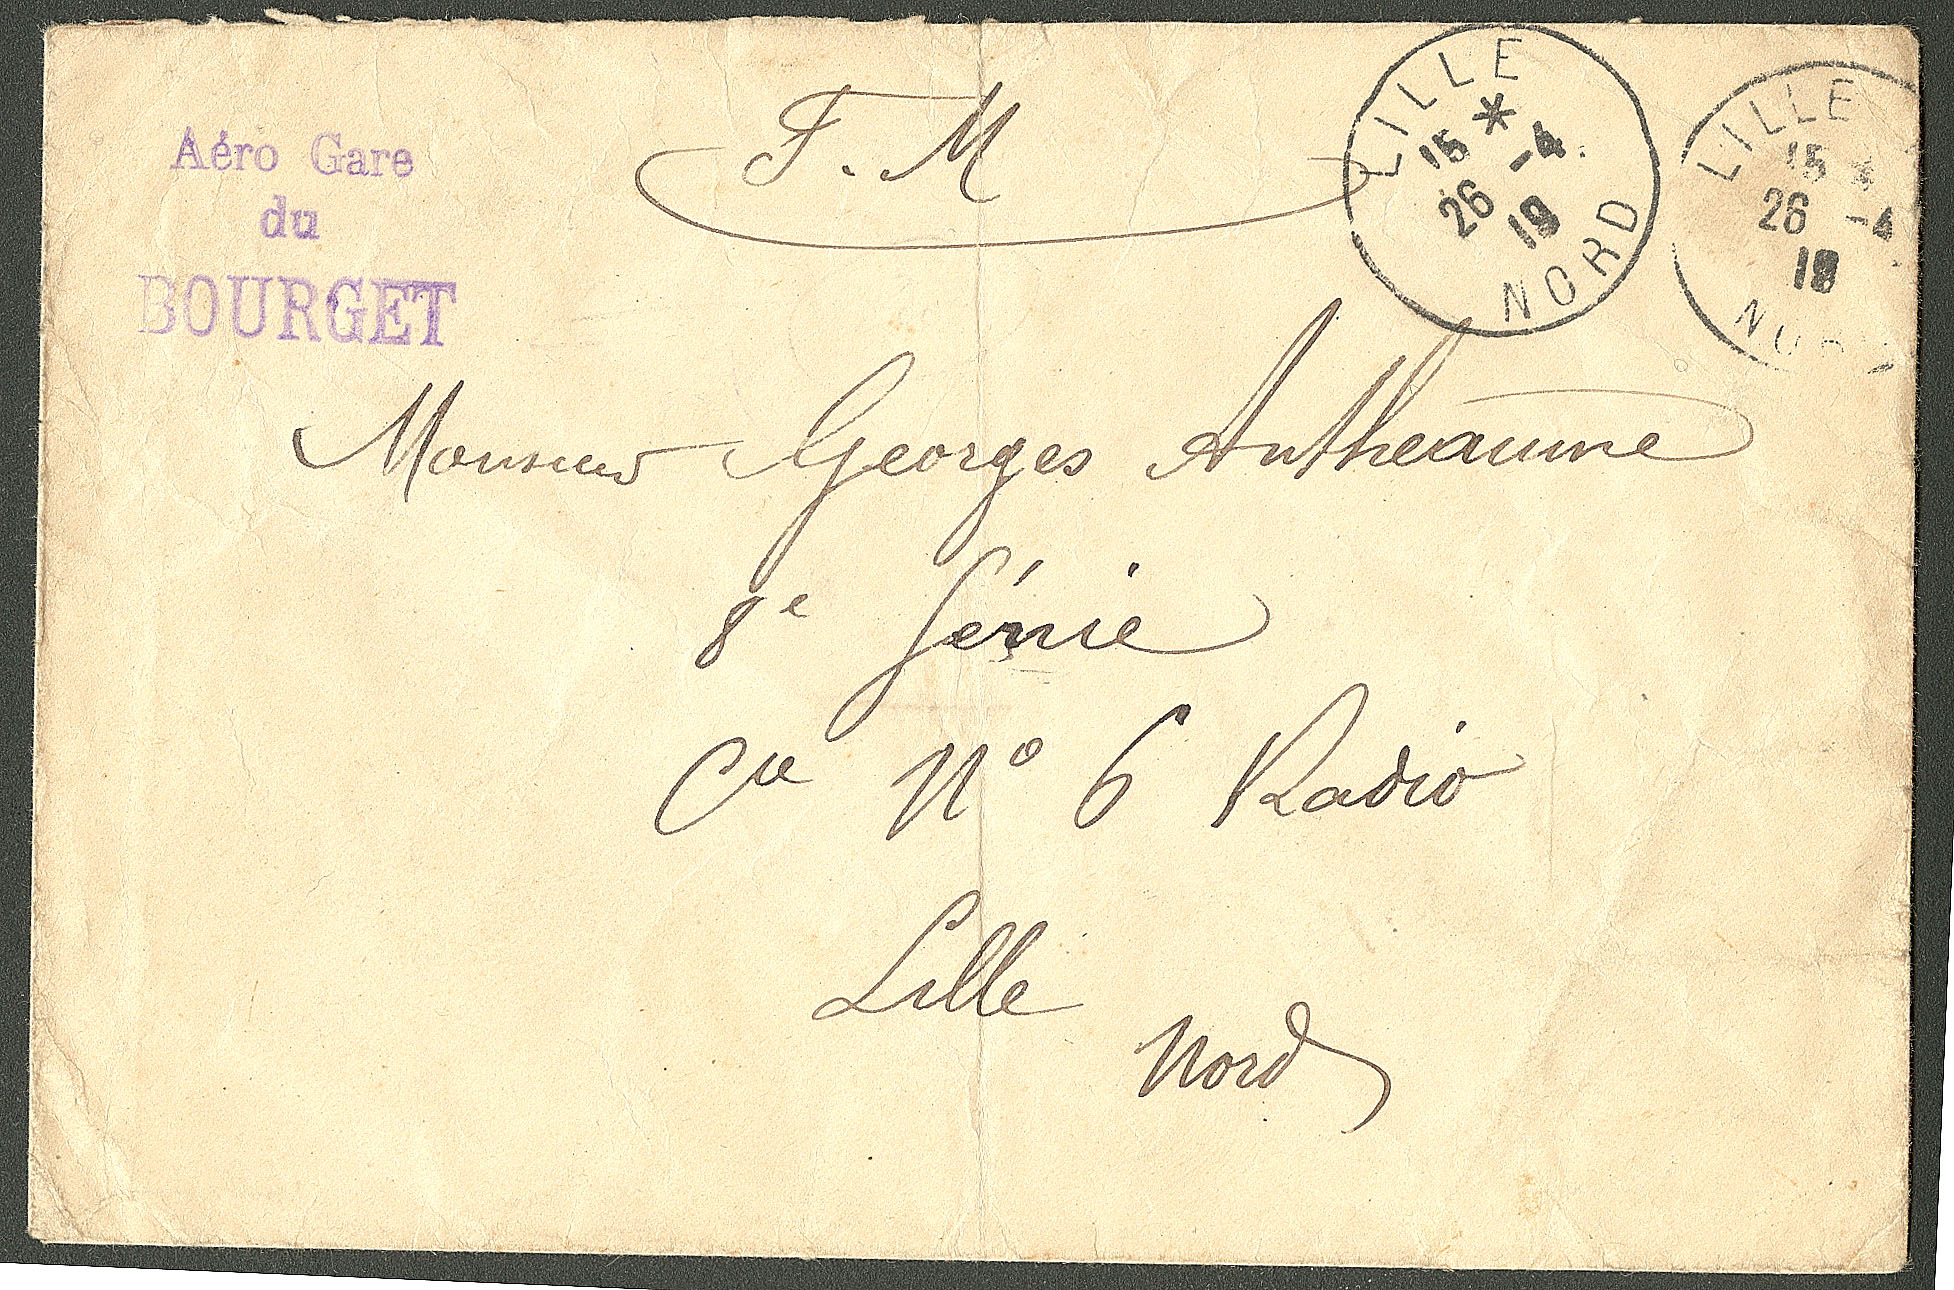 Aéro Gare
du
BOURGET
F. M
LILLE
15 *
26 -4
19
NORD
LILLE
15 *
26 -4
19
NORD
Monsieur Georges Antheaume
8e Génie
Cie N° 6 Radio
Lille
Nord